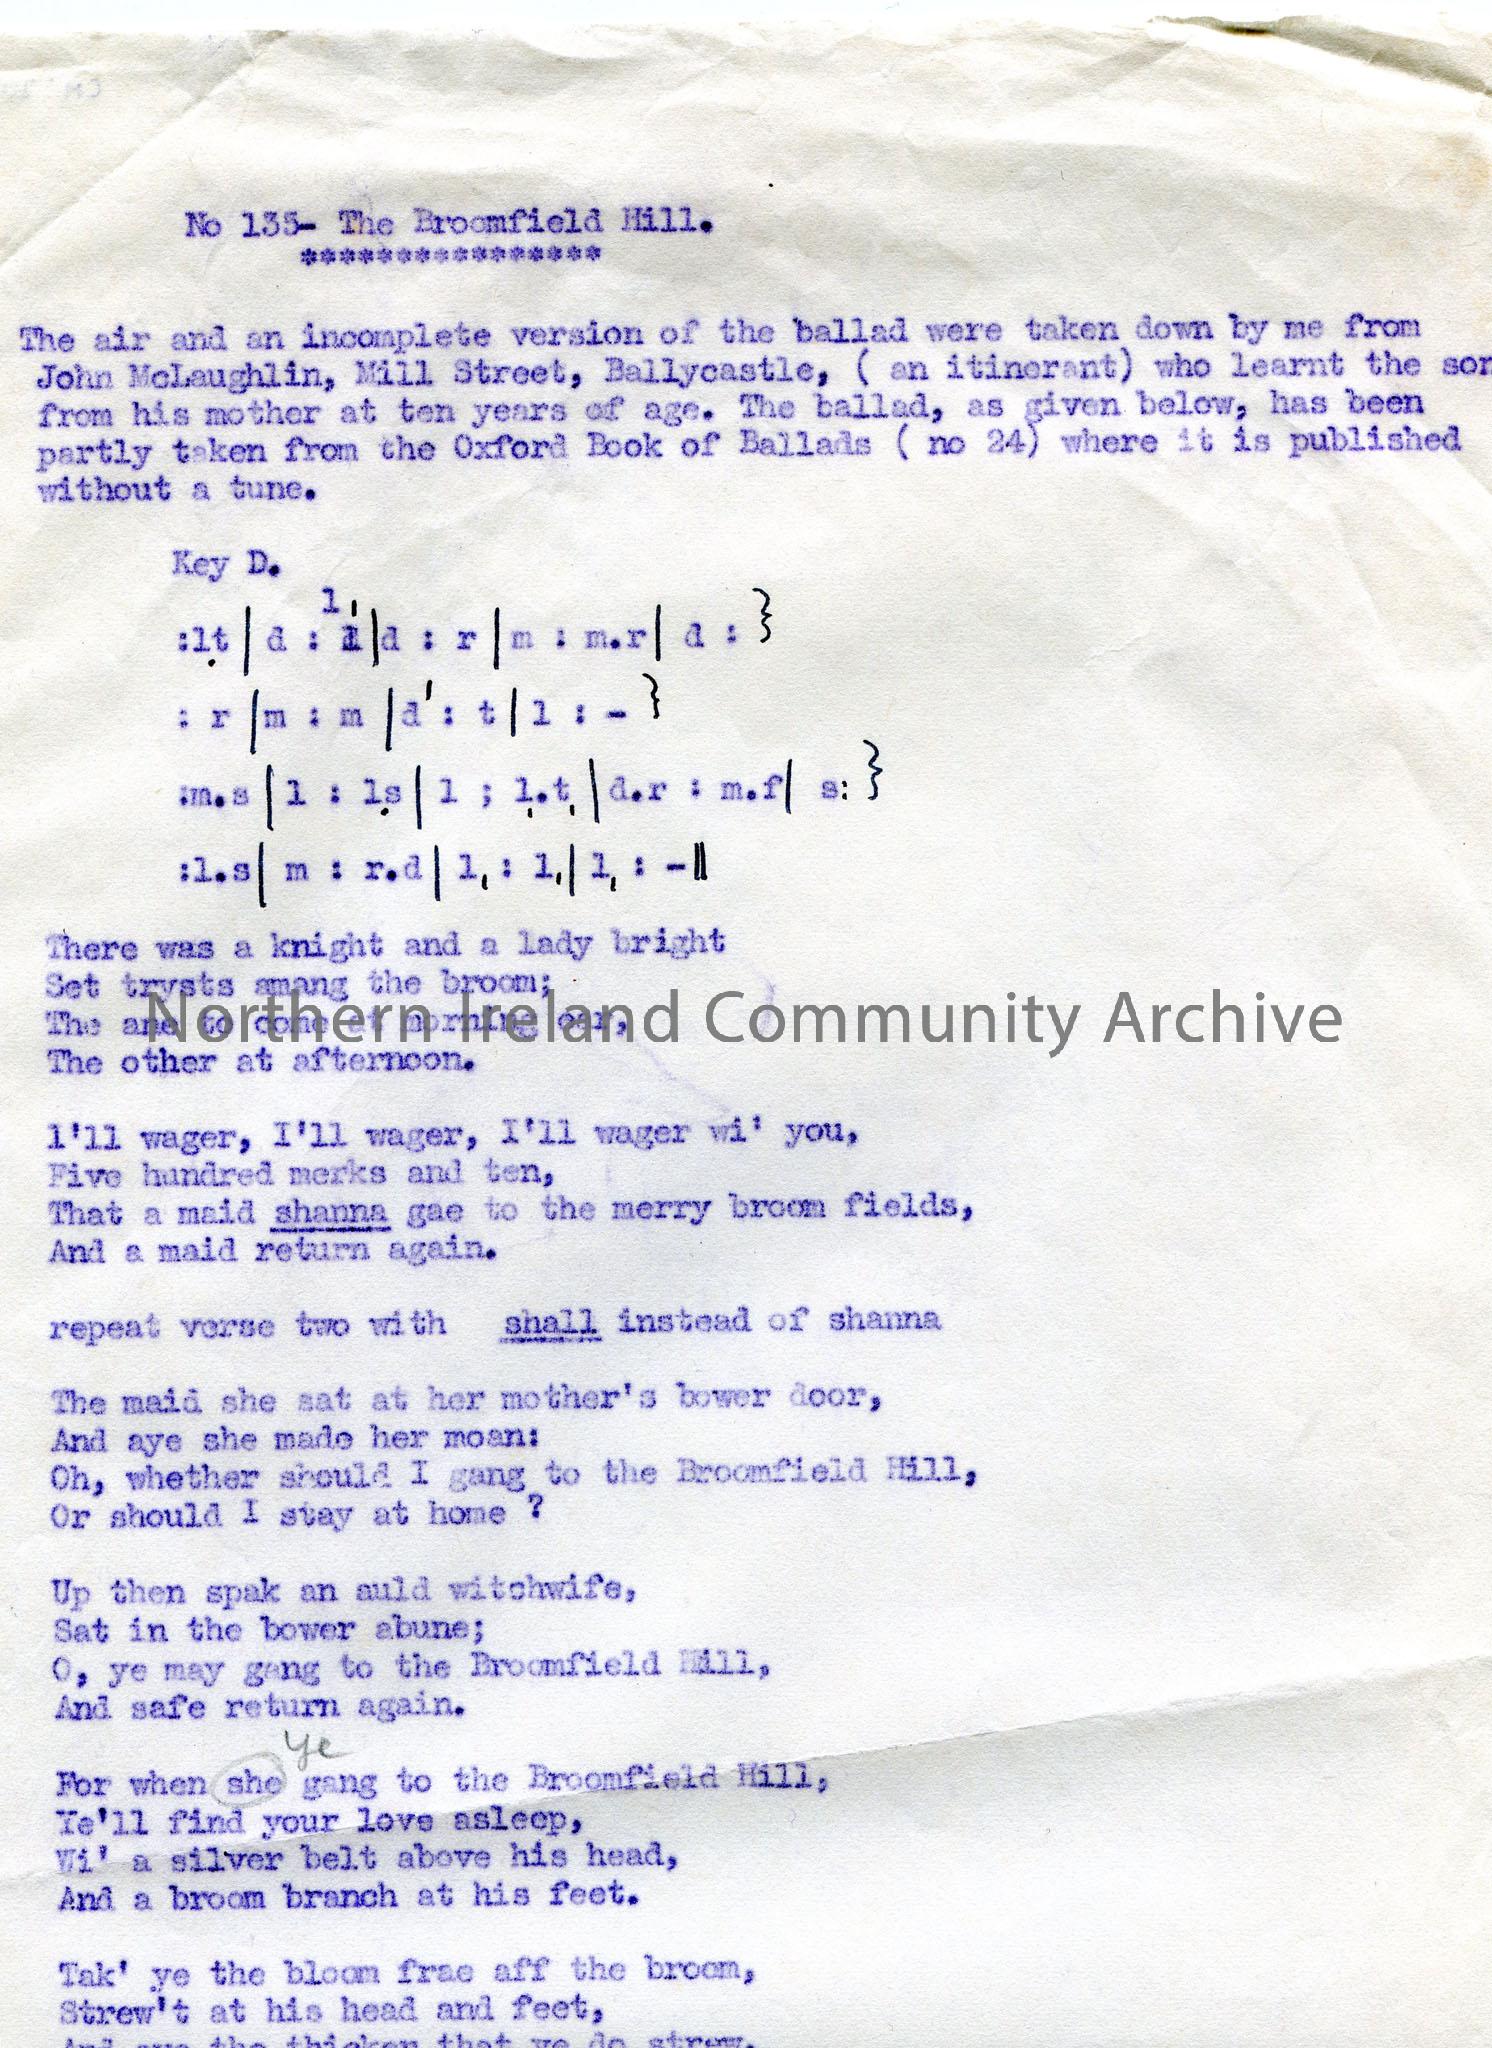 No 135- The Broomfield Hill.
****************
The air and an incomplete version of the ballad were taken down by me from
John McLaughlin, Mill Street, Ballycastle, ( an itinerant) who learnt the son
from his mother at ten years of age. The ballad, as given below, has been
partly taken from the Oxford Book of Ballads ( no 24) where it is published
without a tune.
Key D.
l,
:lt | d : l | d : r | m : m.r | d : }
: r | m : m | d' : t | l : - }
:m.s | l : ls | l ; l.t, | d.r : m.f | s: }
:l.s | m : r.d | l, : l, | l, : - ||
There was a knight and a lady bright
Set trysts amang the broom;
The ane to come at morning ear,
The other at afternoon.
Northern Ireland Community Archive
l'll wager, I'll wager, I'll wager wi' you,
Five hundred merks and ten,
That a maid shanna gae to the merry broom fields,
And a maid return again.
repeat verse two with shall instead of shanna
The maid she sat at her mother's bower door,
And aye she made her moan:
Oh, whether should I gang to the Broomfield Hill,
Or should I stay at home ?
Up then spak an auld witchwife,
Sat in the bower abune;
O, ye may gang to the Broomfield Hill,
And safe return again.
ye
For when she gang to the Broomfield Hill,
Ye'll find your love asleep,
Wi' a silver belt above his head,
And a broom branch at his feet.
Tak' ye the bloom frae aff the broom,
Strew't at his head and feet,
And aye the thicker that ye do strew,